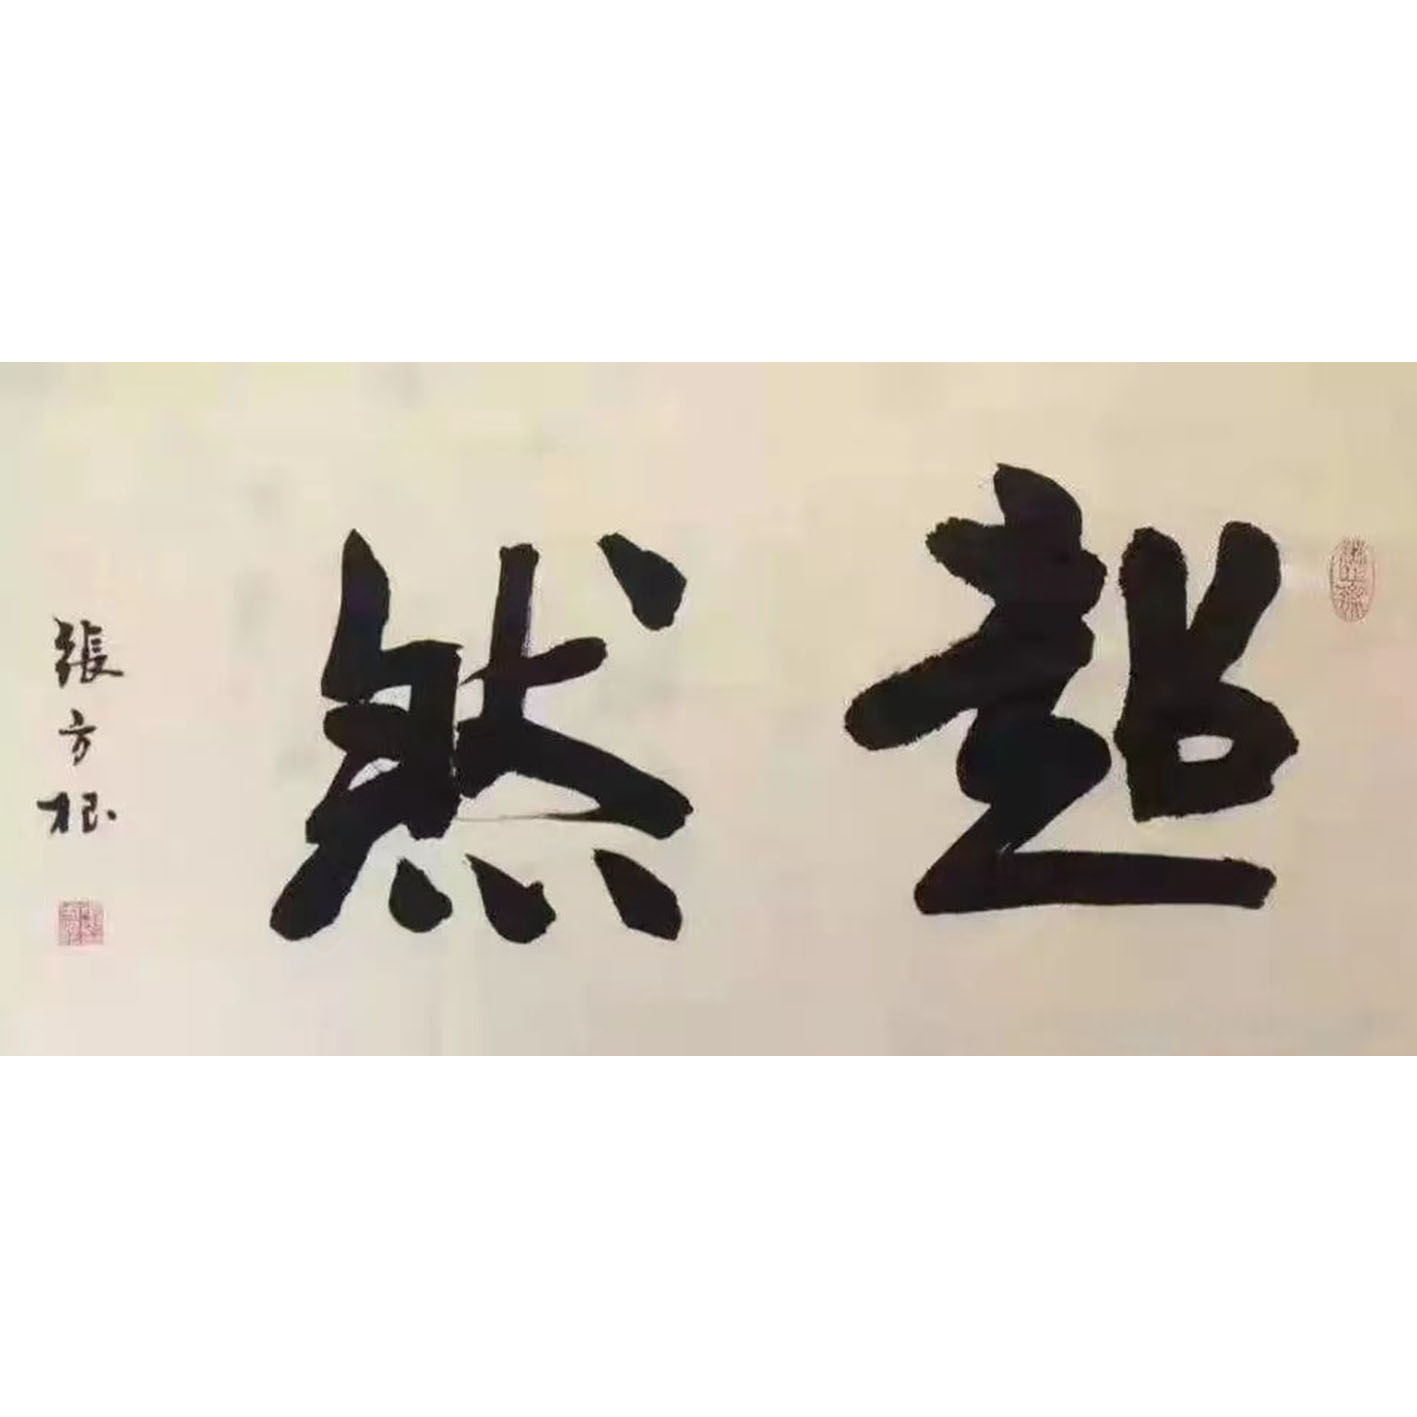 超然
張方根